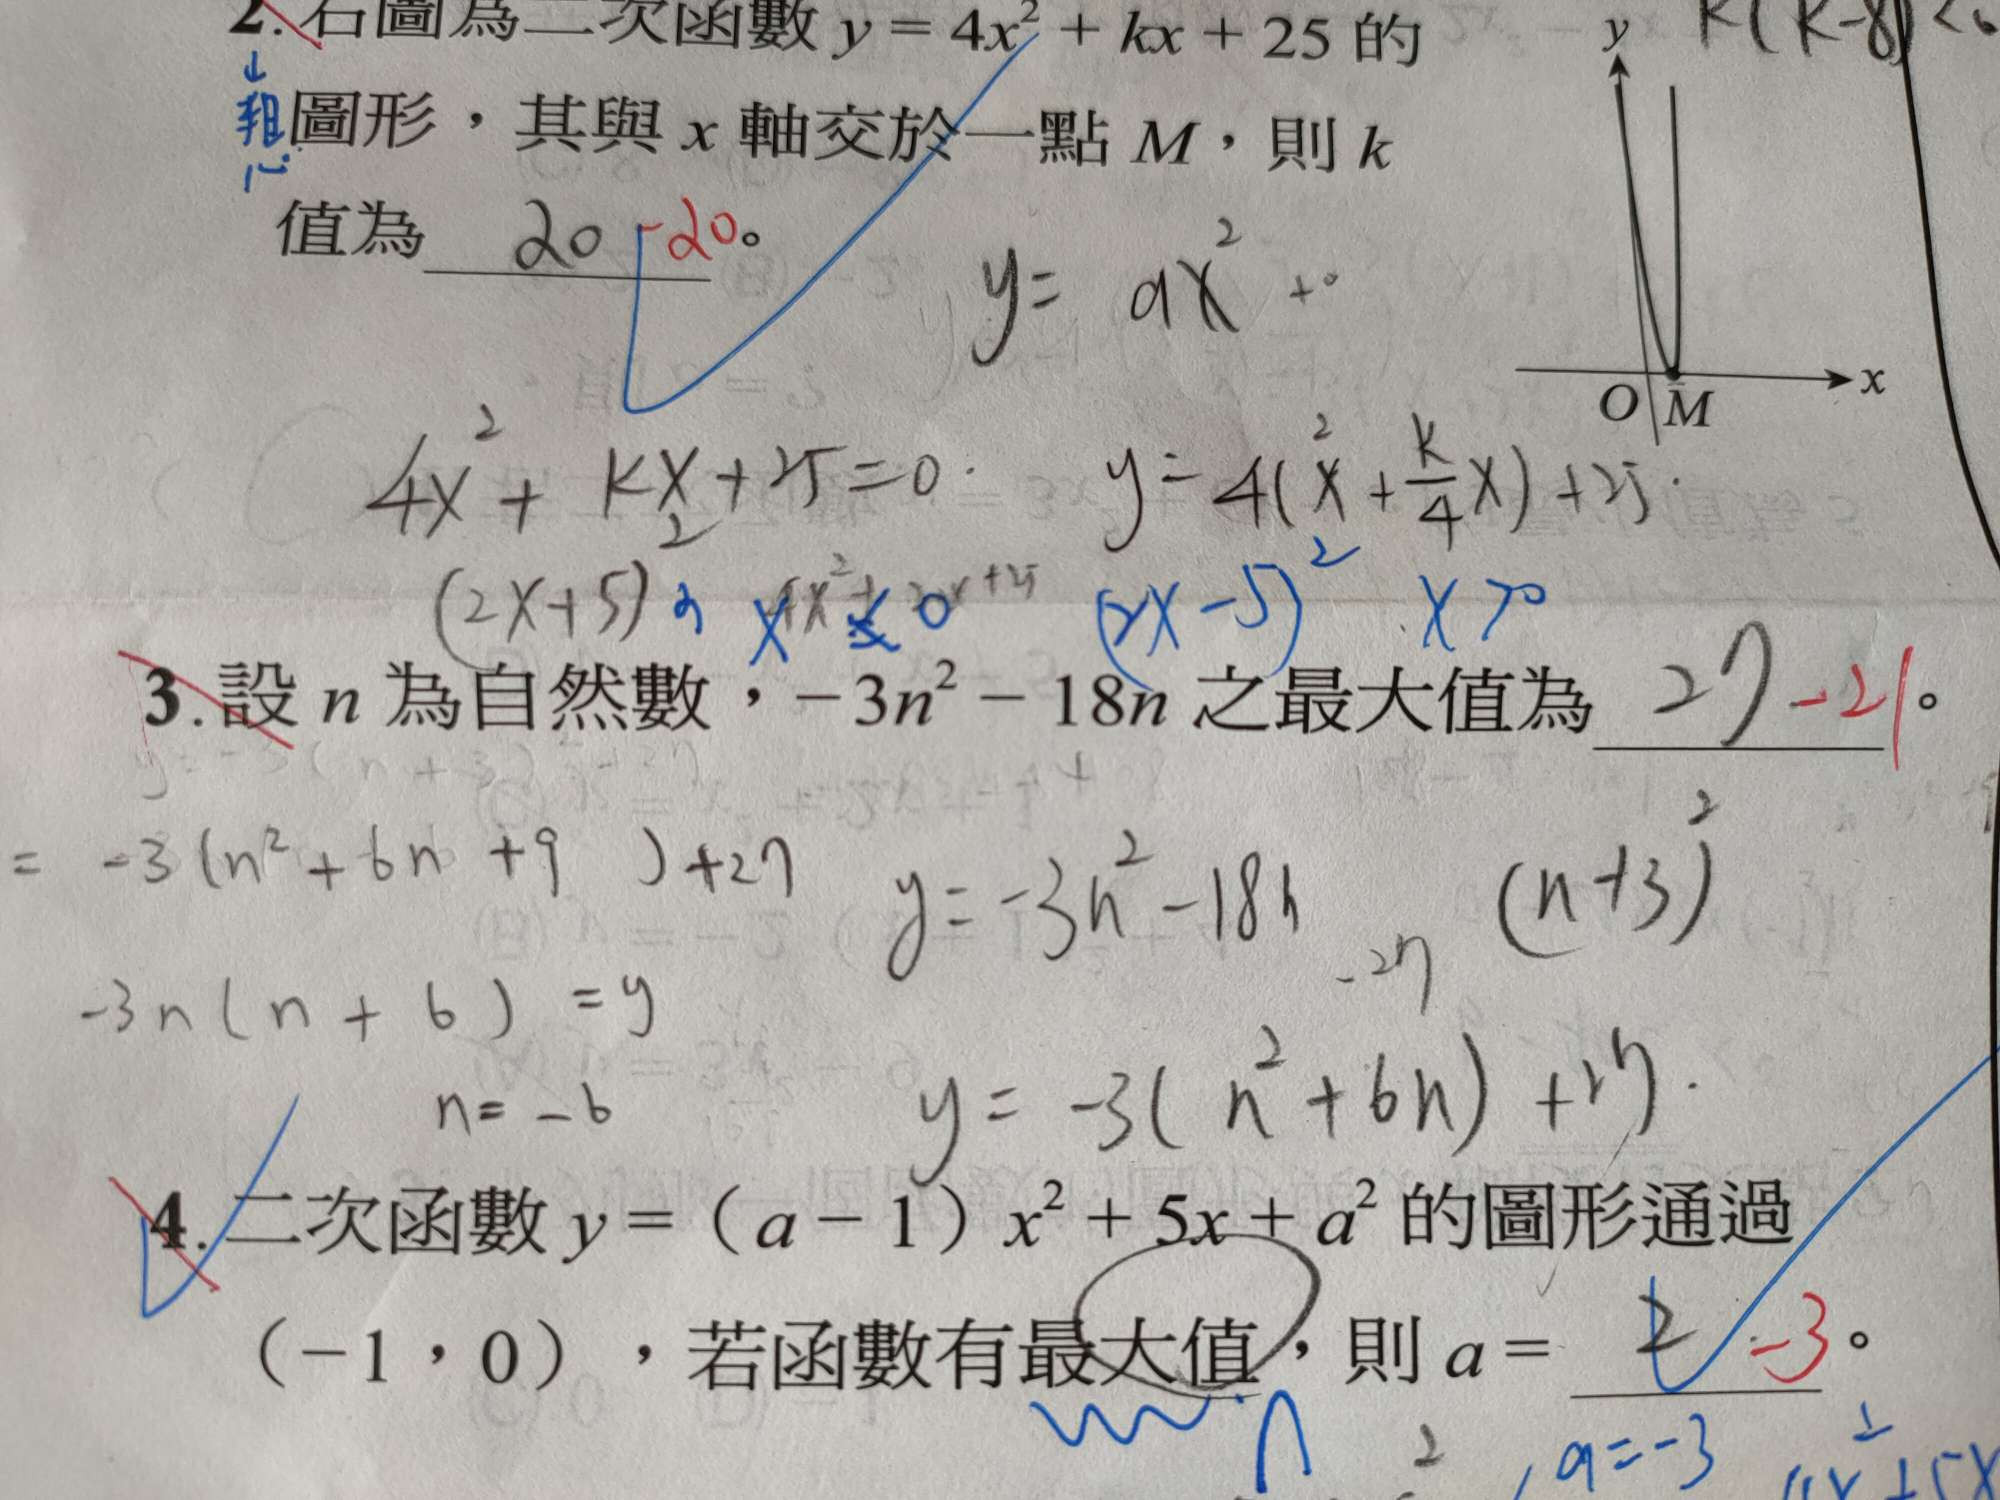 2. 右圖為二次函數 y = 4x² + kx + 25 的
K(K-8)<0
↓
粗心
圖形，其與 x 軸交於一點 M，則 k
值為 20 -20。
y
x
O M
y = ax² +0
4x² + kx + 25 = 0
y = 4(x² + k/4 x) + 25
(2x+5)²
x < 0
(2x-5)² x>0
3. 設 n 為自然數，-3n² - 18n 之最大值為 27 -21。
y = -3(n+3)²+27
= -3(n² + 6n +9 ) +27
y = -3n² - 18n
(n+3)²
-27
-3n(n + 6) = y
n = -6
y = -3(n² + 6n) + 27
4. 二次函數 y =（a - 1）x² + 5x + a² 的圖形通過
（-1，0），若函數有最大值，則 a = 2 -3。
a = -3